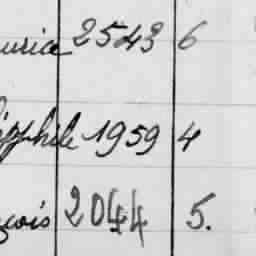 urice 2543 6
éophile 1959 4
çois 2044 5.